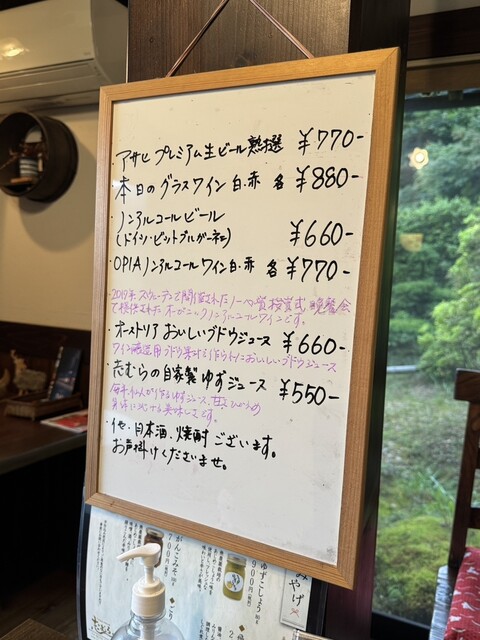 ・アサヒ プレミアム生ビール熟撰 ¥770-
・本日のグラスワイン 白・赤 各 ¥880-
・ノンアルコールビール
(ドイツ・ビットブルガー ¥660-
・OPIA ノンアルコールワイン白・赤 各 ¥770-
2019年スウェーデンで開催されたノーベル賞授賞式晩餐会
で提供されたオーガニックノンアルコールワインです。
・オーストリア おいしいブドウジュース ¥660-
ワイン醸造用ブドウ果汁 おいしいブドウジュース
・志むらの自家製ゆずジュース ¥550-
毎年 ゆずジュース、
美味しさです。
・他、日本酒、焼酎 ございます。
お声掛けくださいませ。
みやげ
ゆずこしょう
がんこみそ